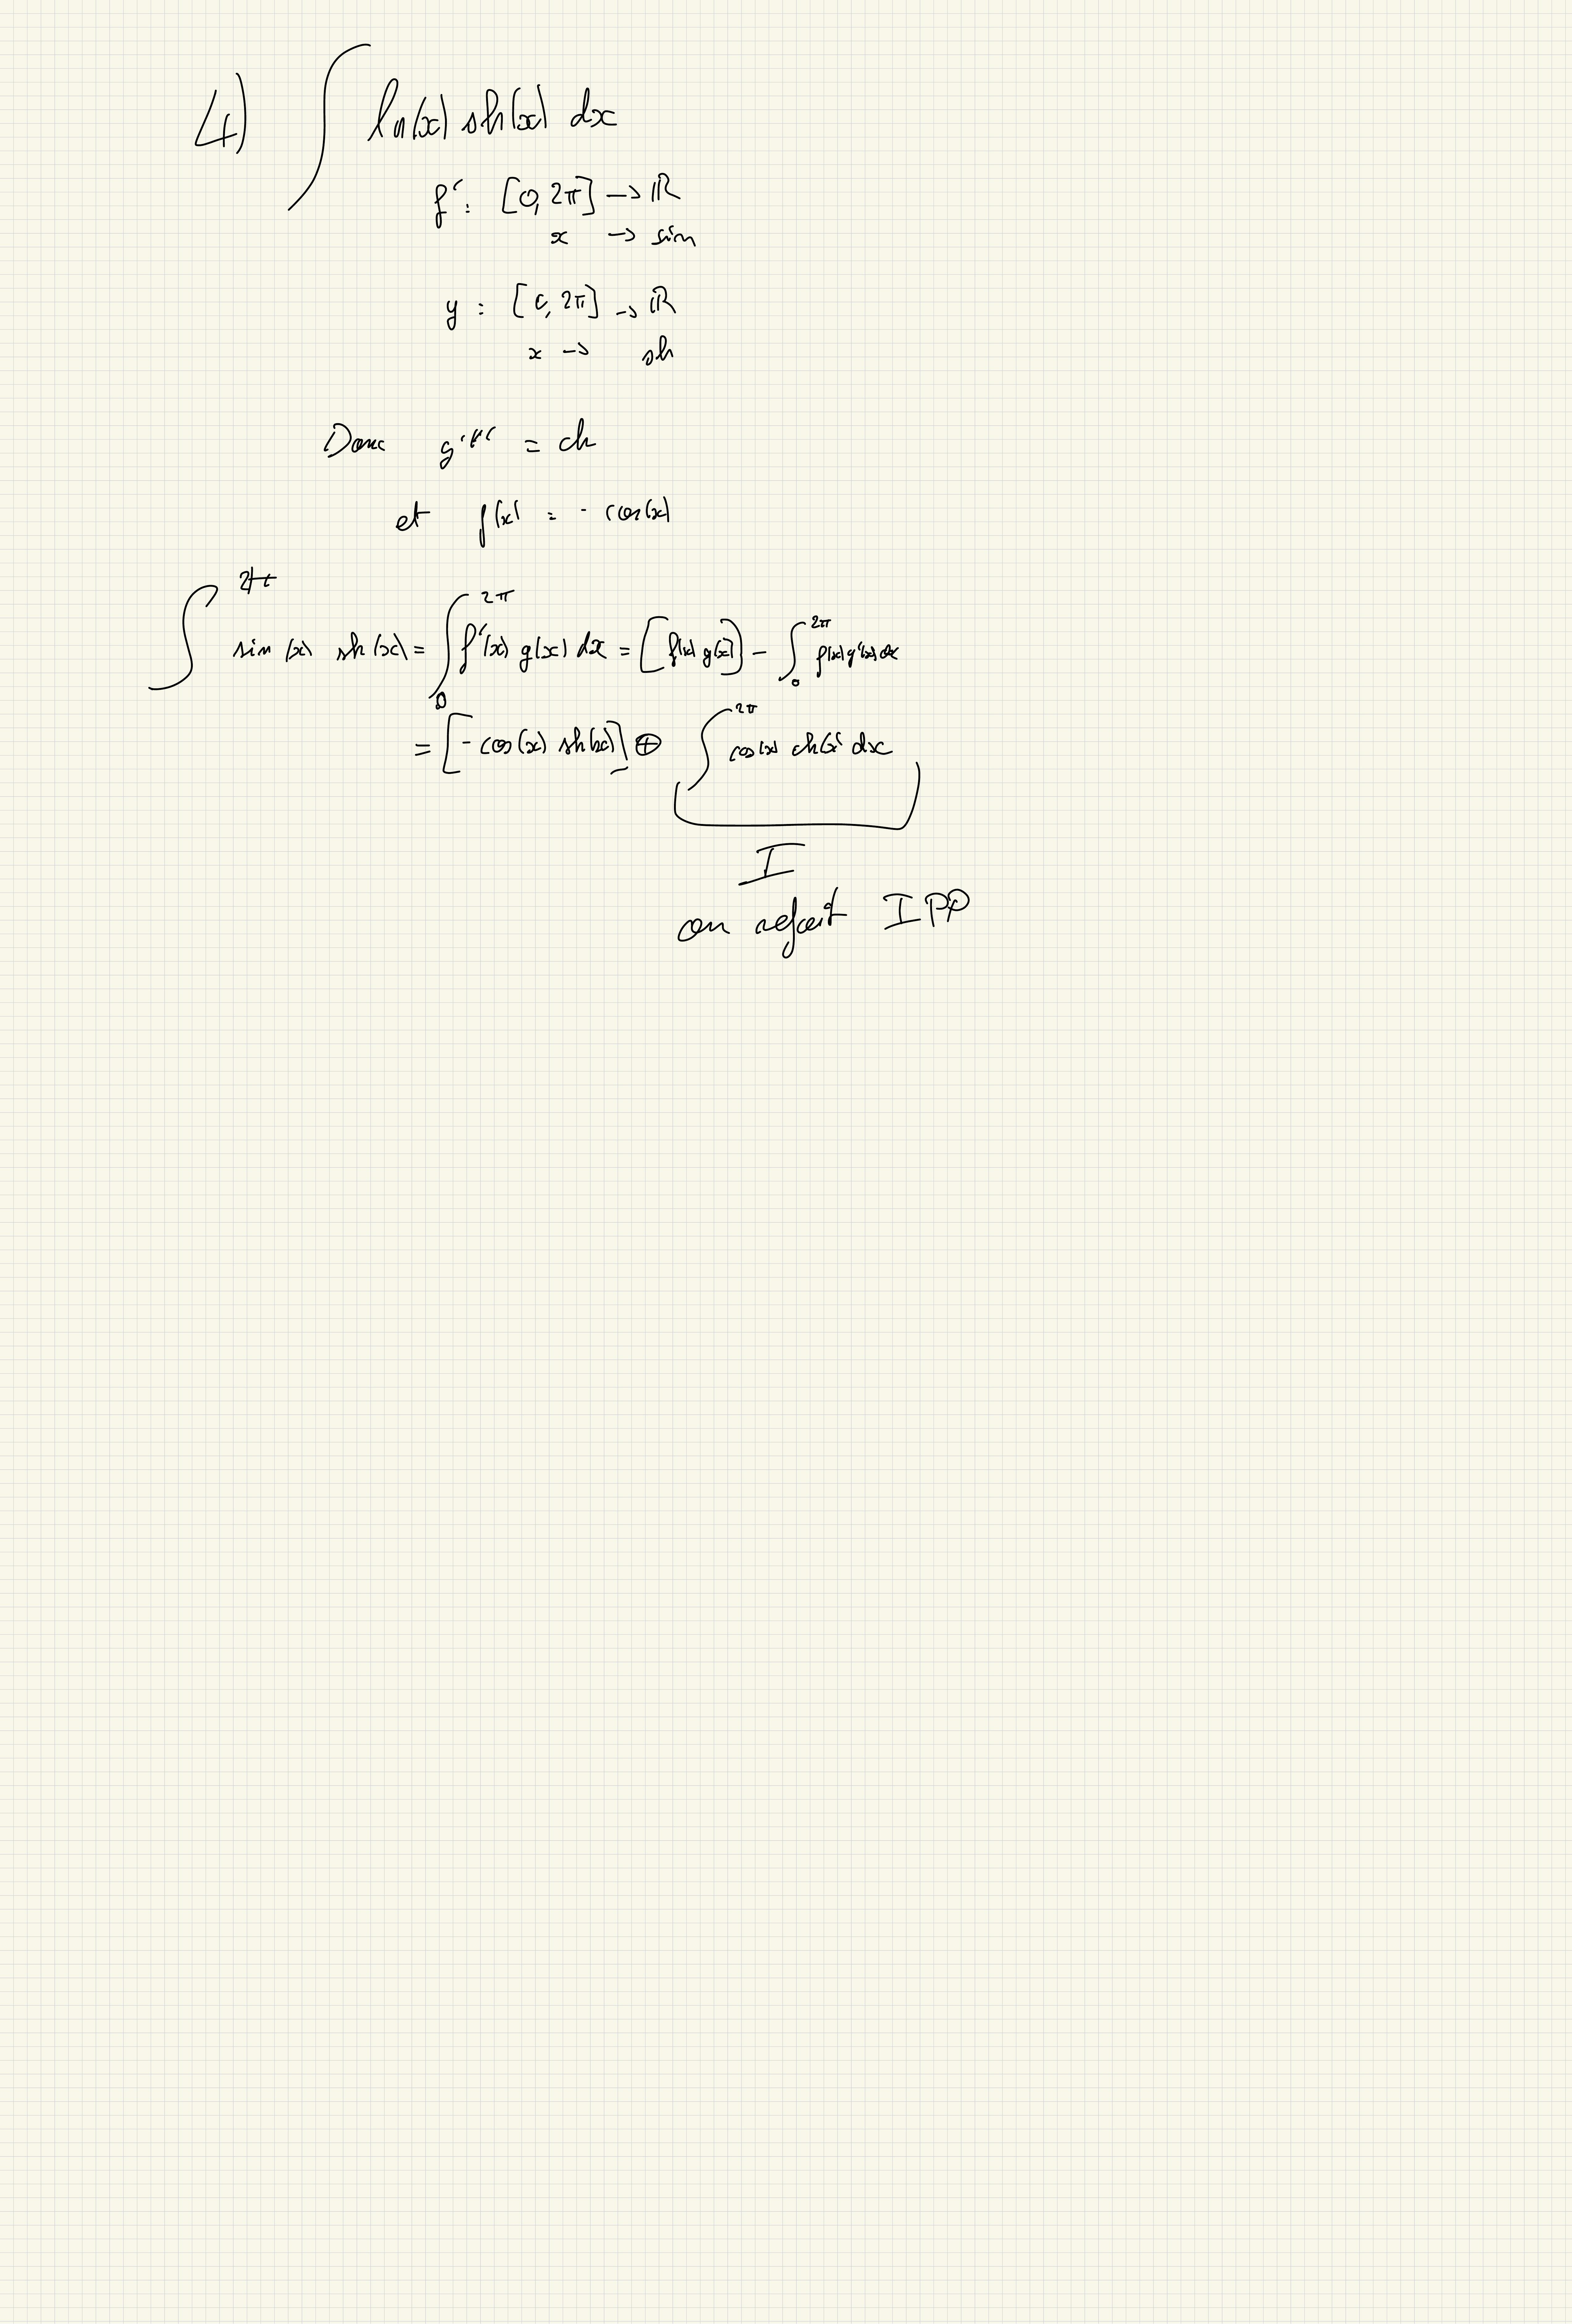 4) ∫ ln(x) sh(x) dx
f' : [0, 2π] → ℝ
x → sin
y : [0, 2π] → ℝ
x → sh
Donc g''' = ch
et f(x) = - cos(x)
∫^2π sin(x) sh(x) = ∫_0^2π f'(x) g(x) dx = [f(x) g(x)] - ∫_0^2π f(x) g'(x) dx
= [- cos(x) sh(x)] ⊕ ∫^2π cos(x) ch(x) dx
I
on refait IPP